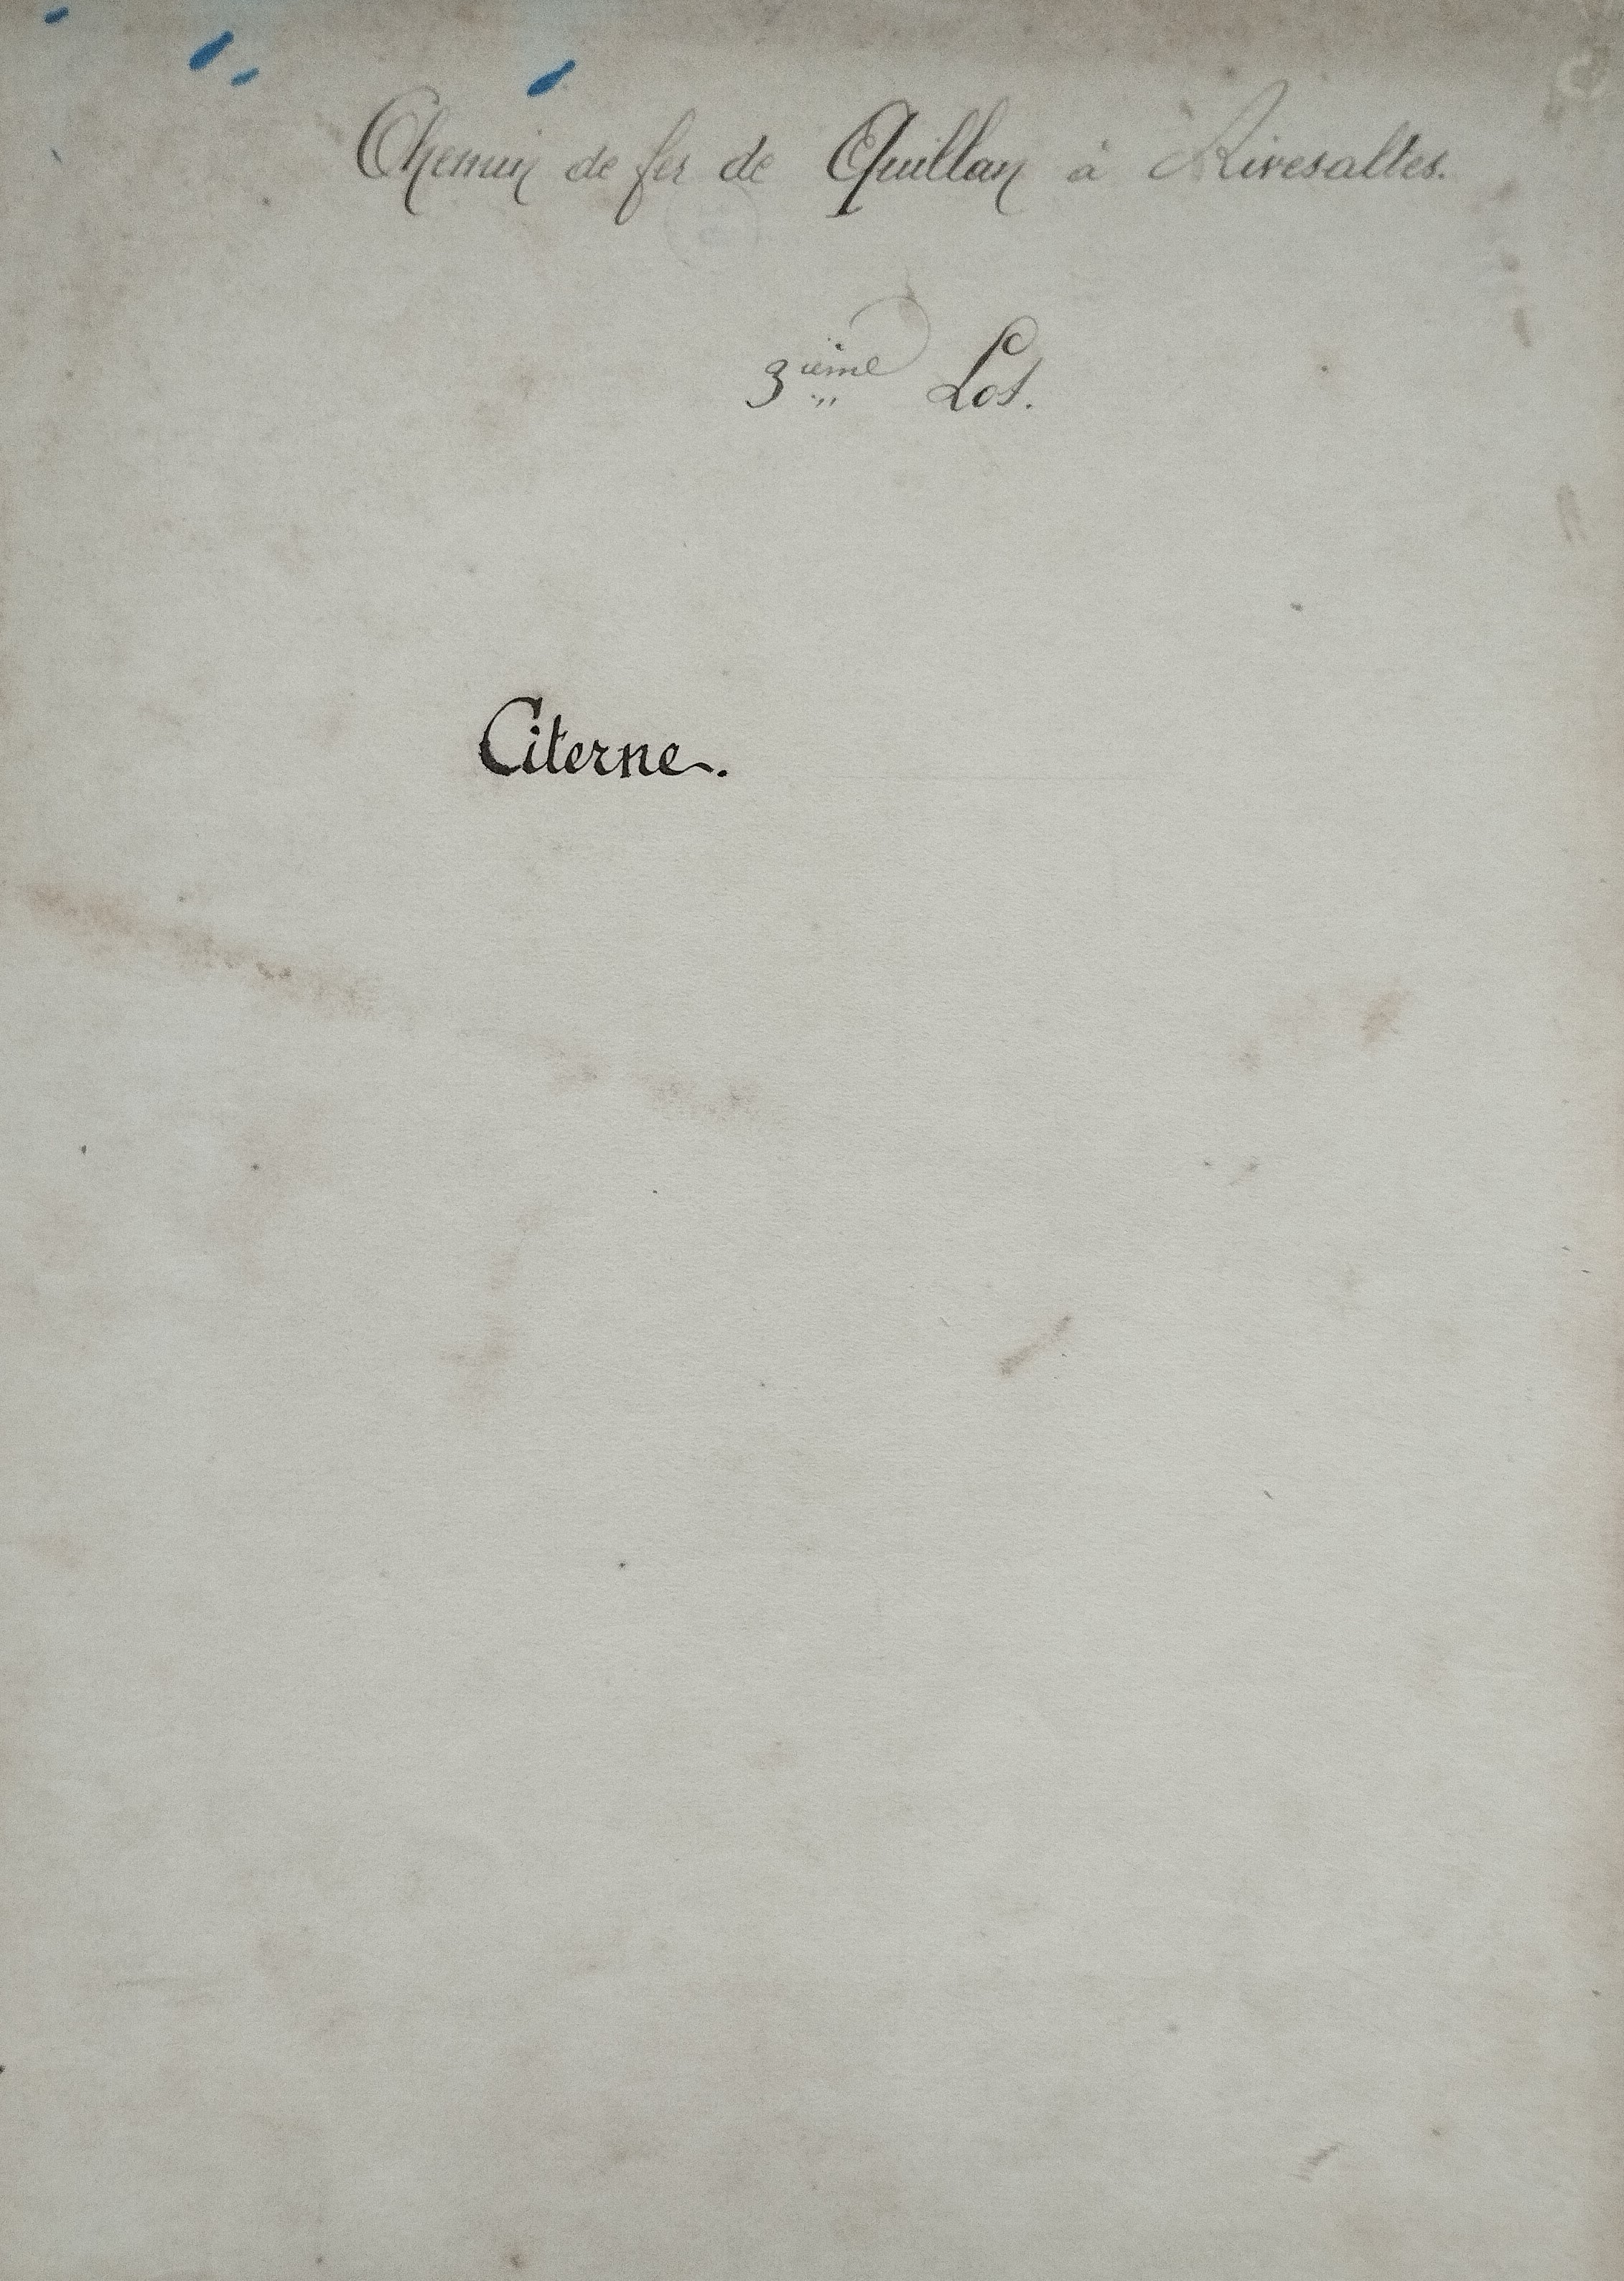 Chemin de fer de Quillan à Rivesaltes.
3ième Lot.
Citerne.